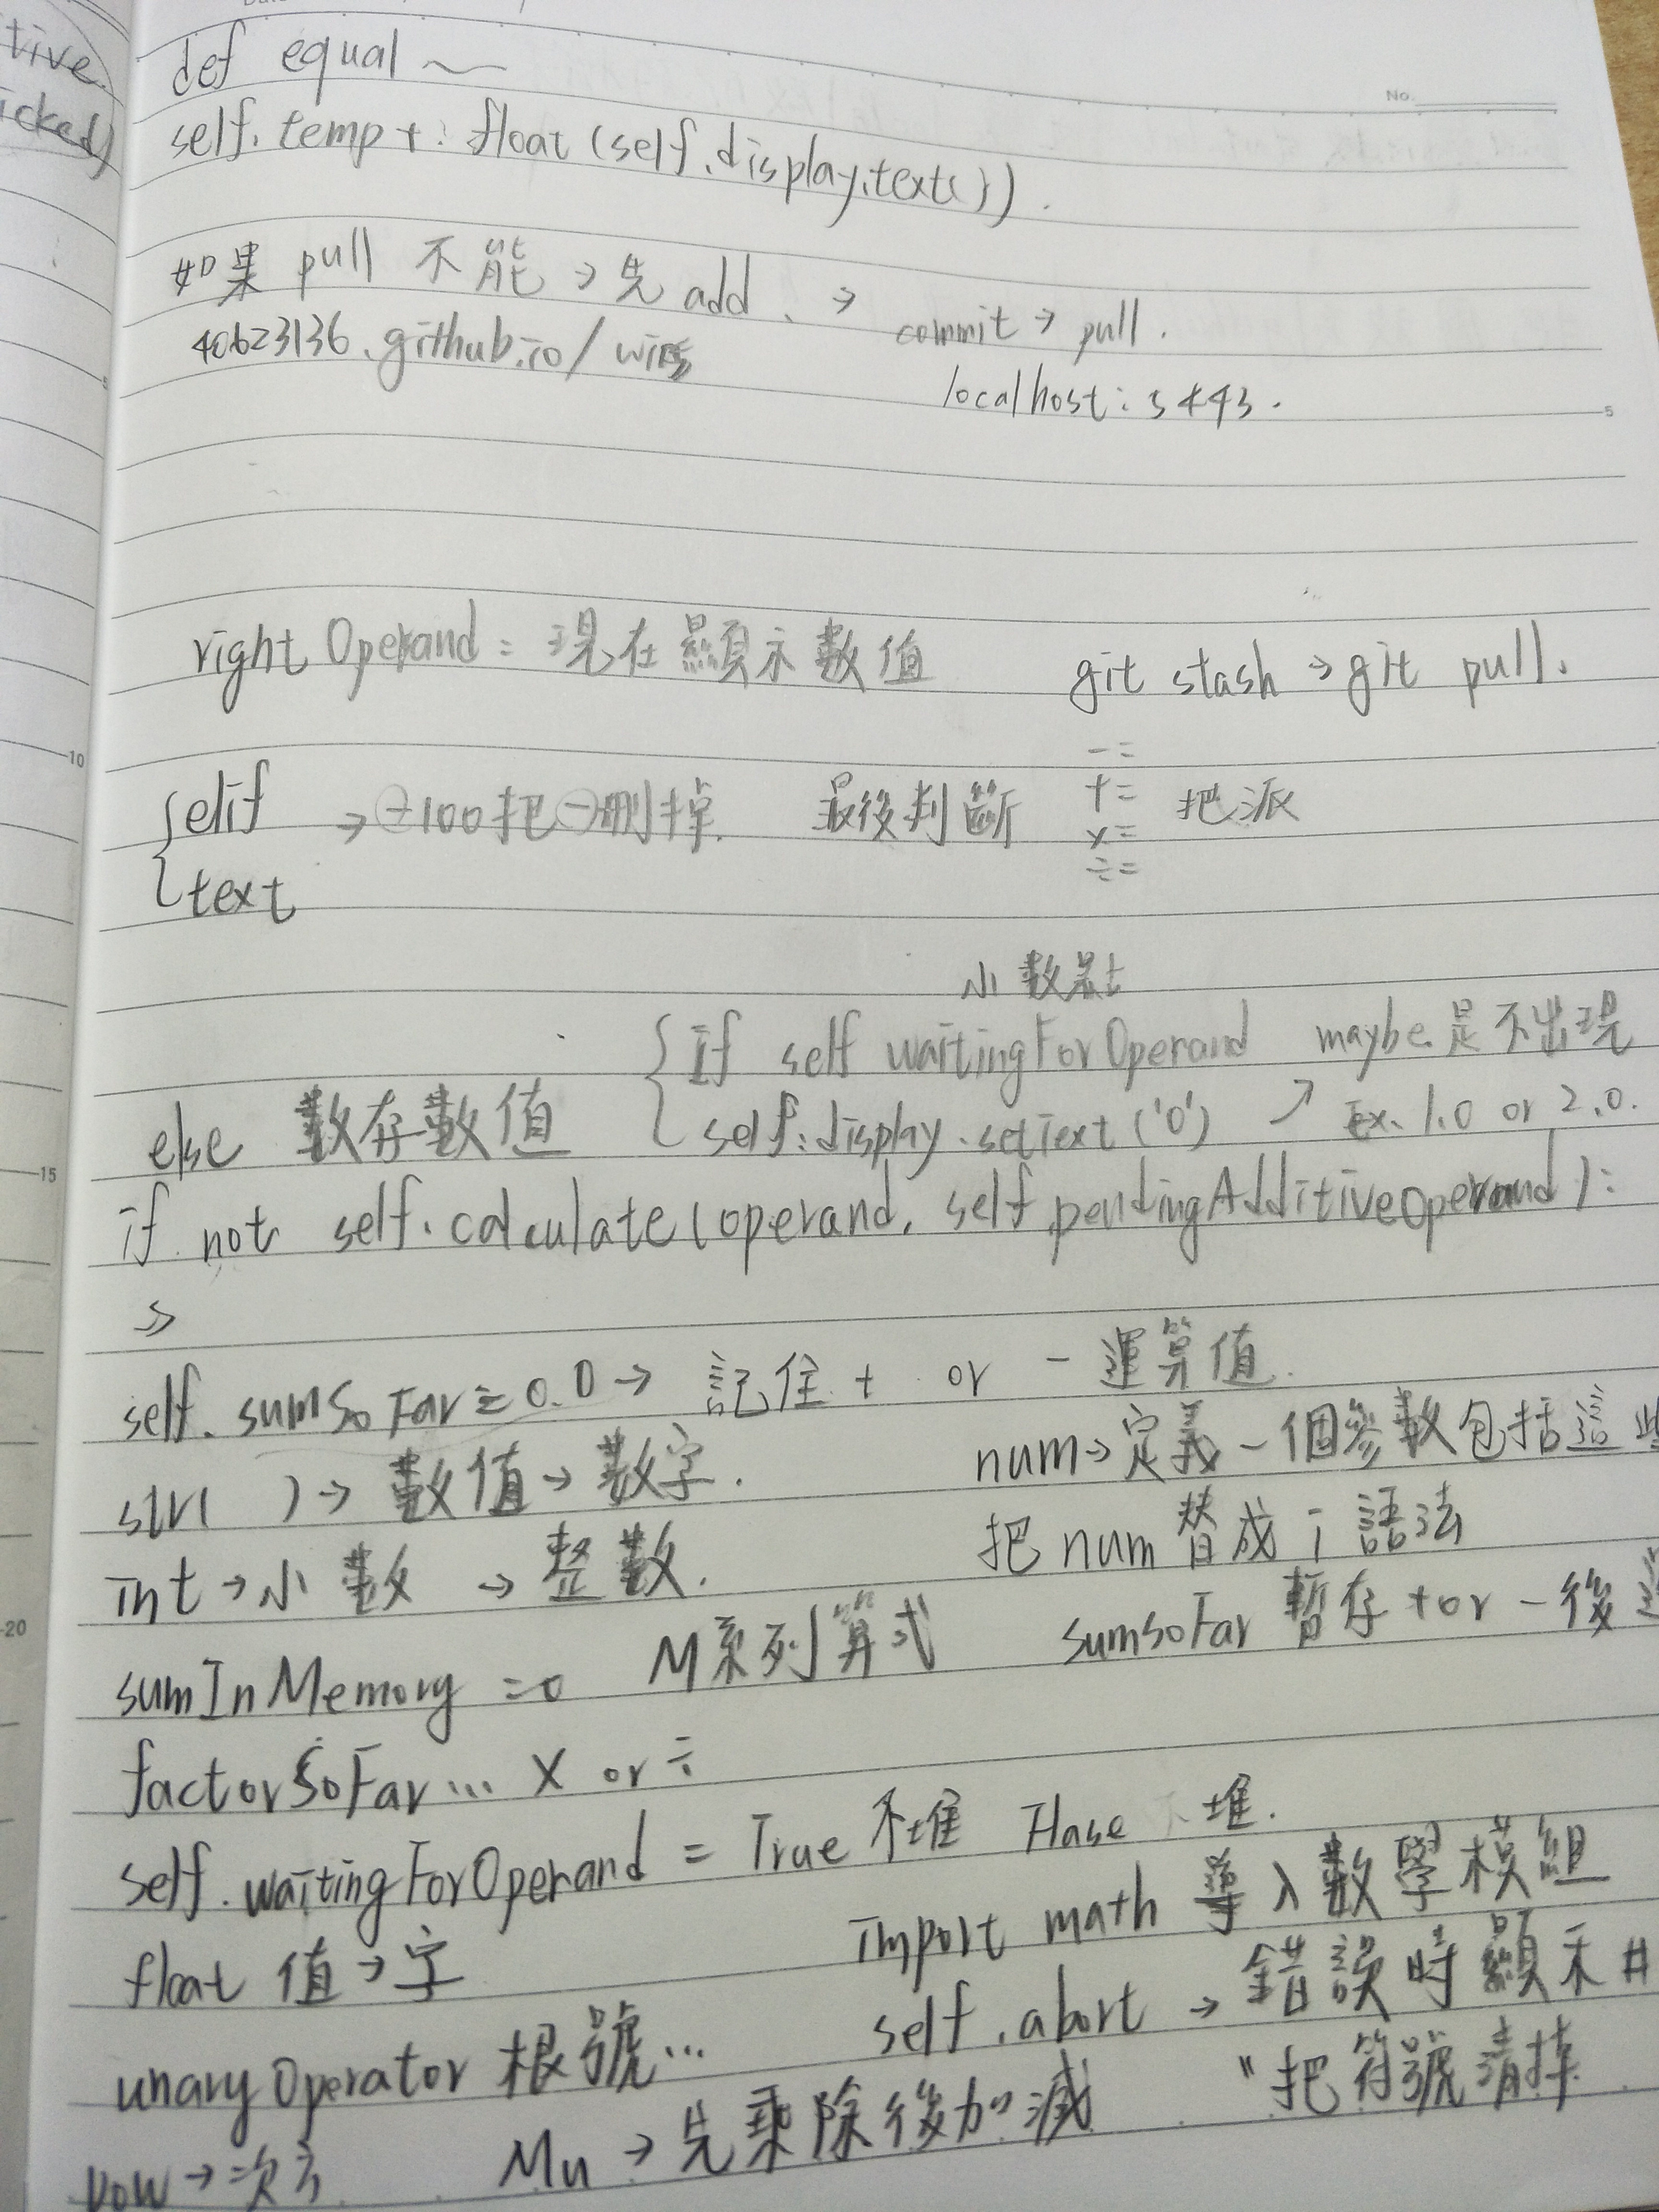 tive
icked)
No.
def equal ~
self.temp + : float (self.display.text()).
如果 pull 不能 → 先 add、→ commit → pull.
40623136.github.io/
localhost: 5443.
5
right Operand = 現在顯示數值 git stash → git pull.
10
elif → ⊖100把⊖刪掉. 最後判斷 -= += x= ÷= 把派
text
小數點
if self waitingForOperand maybe 是不出現
else 數存數值 self.display.setText('0') ↗ Ex. 1.0 or 2.0.
15
if not self.calculate(operand, self.pendingAdditiveOperand):
>>
self.sumSoFar = 0.0 → 記住 + or - 運算值.
str( ) → 數值 → 數字. num → 定義一個參數包括這些
int → 小數 → 整數. 把 num 替成 i 語法
20
sumInMemory = 0 M系列算式 sumsoFar 暫存 + or - 後
factorSoFar... X or ÷
self.waitingForOperand = True 不堆 Flase 不堆.
float 值 → 字 import math 導入數學模組
unaryOperator 根號... self.abort → 錯誤時顯示 #
pow → 次方 Mu → 先乘除後加減 " 把符號清掉